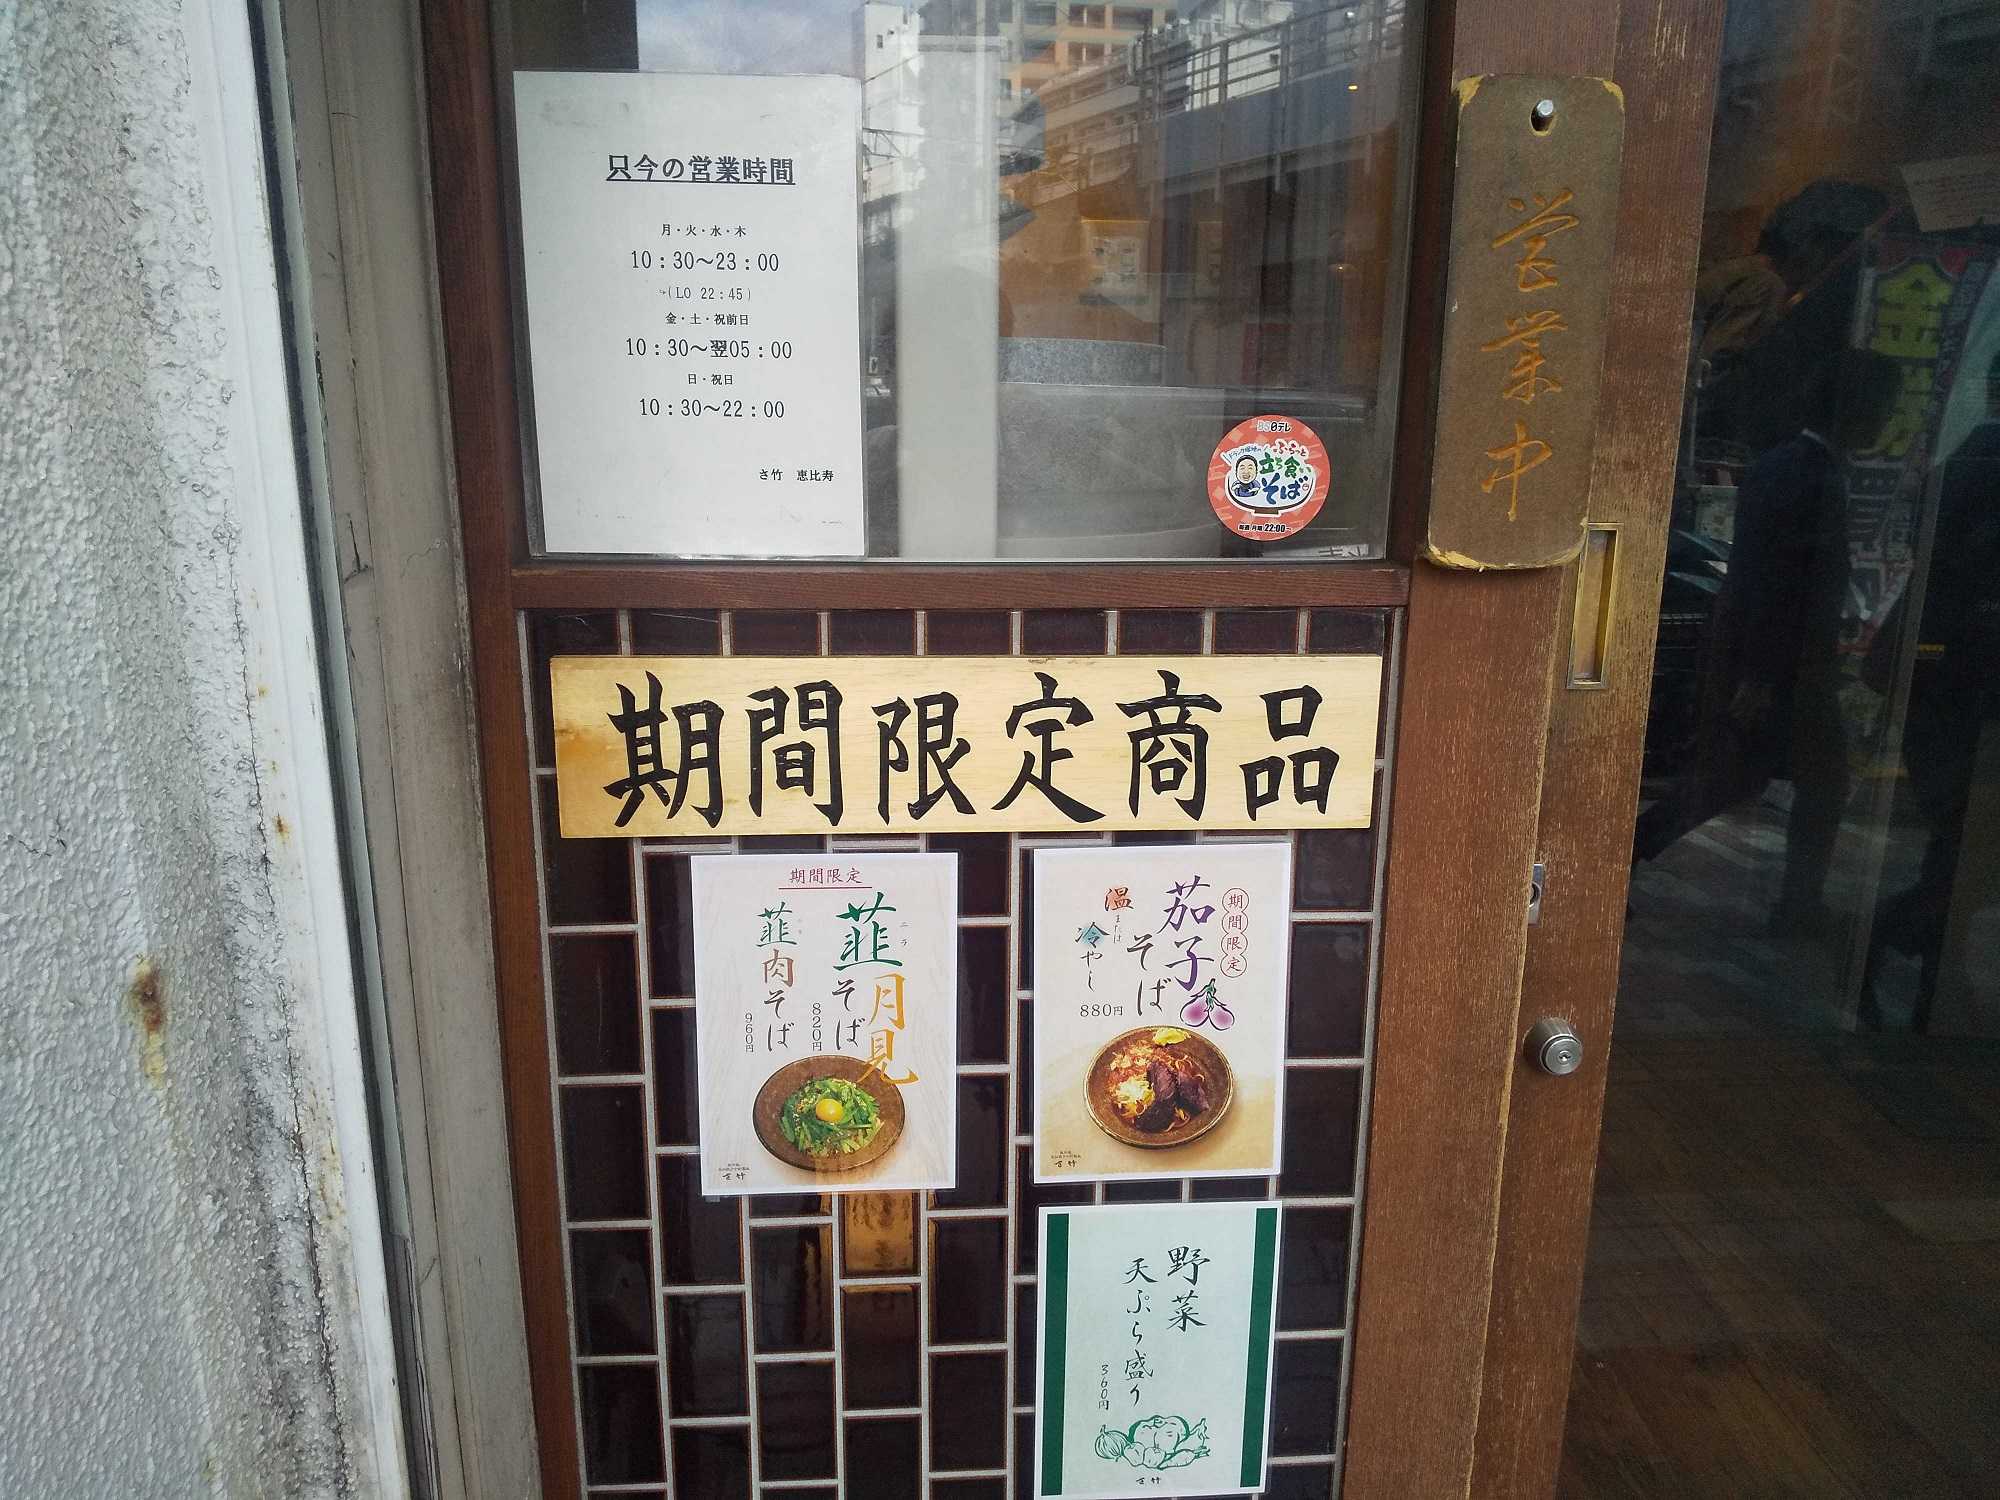 只今の営業時間
月・火・水・木
10：30～23：00
（LO 22：45）
金・土・祝前日
10：30～翌05：00
日・祝日
10：30～22：00
さ竹　恵比寿
BS日テレ
ぶらっと
立ち食い
そば
毎週 月曜 22:00～
営業中
期間限定商品
期間限定
韮月見そば
ニラ
820円
韮肉そば
960円
さ竹
期間限定
茄子そば
温または冷やし
880円
さ竹
野菜
天ぷら盛り
360円
さ竹